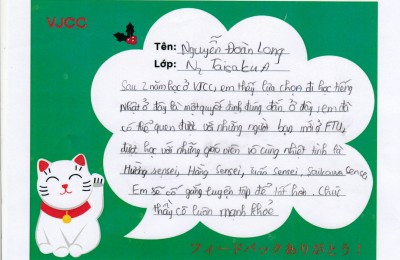 VJCC
Tên: Nguyễn Đoàn Long
Lớp: N2 Taisaku A
Sau 2 năm học ở VJCC, em thấy lựa chọn đi học tiếng
Nhật ở đây là một quyết định đúng đắn. Ở đây, em đã
có thể quen được với những người bạn mới ở FTU,
được học với những giáo viên vô cùng nhiệt tình là
Hường sensei, Hằng sensei, Tuấn sensei, sensei.
Em sẽ cố gắng luyện tập để tốt hơn. Chúc
thầy cô luôn mạnh khoẻ
フィードバックありがとう!